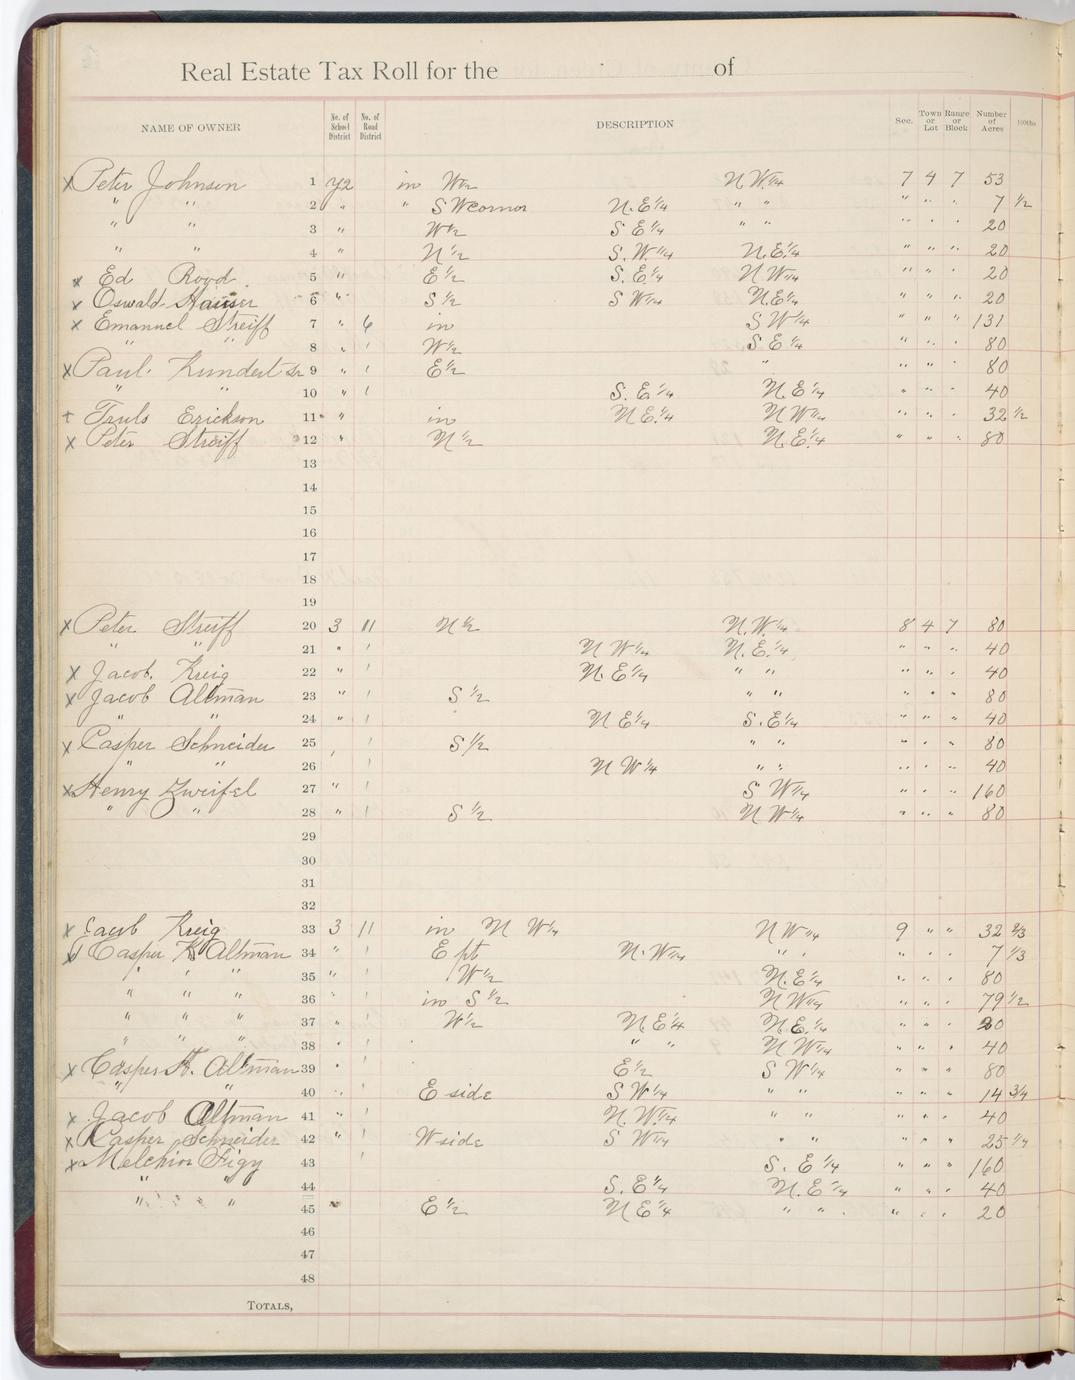 Real Estate Tax Roll for the of
NAME OF OWNER No. of School District No. of Road District DESCRIPTION Sec. Town or Lot Range or Block Number of Acres 100ths
x Peter Johnson 1 in W½ N.W.¼ 7 4 7 53
" " 2 " " S W cornor N.E¼ " " " " " 7 ½
" " 3 " W½ S E ¼ " " " " " 20
" " 4 " N ½ S.W.¼ N.E.¼ " " " 20
x Ed Rood 5 " E ½ S.E.¼ N W¼ " " " 20
x Oswald Hauser 6 " S ½ S W¼ N.E¼ " " " 20
x Emanuel Streiff 7 " 6 in S W¼ " " " 131
" " 8 " " W½ S E ¼ " " " 80
x Paul Kundert Sr 9 " " E ½ " " " " 80
" " 10 " " S.E.¼ N.E¼ " " " 40
x Truls Erickson 11 " in N E.¼ N W¼ " " " 32 ½
x Peter Streiff 12 " N ½ N.E.¼ " " " 80
13
14
15
16
17
18
19
x Peter Streiff 20 3 11 N ½ N.W.¼ 8 4 7 80
" " 21 " " N W¼ N.E.¼ " " " 40
x Jacob Kreig 22 " " N.E¼ " " " " " 40
x Jacob Altman 23 " " S ½ " " " " " 80
" " 24 " " N E¼ S.E¼ " " " 40
x Casper Schneider 25 " " S ½ " " " " " 80
" " 26 " N W¼ " " " " " 40
x Henry Zweifel 27 " " S W¼ " " " 160
" " 28 " " S ½ N W¼ " " " 80
29
30
31
32
x Jacob Kreig 33 3 11 in N W¼ N W¼ 9 " " 32 ⅔
x Casper K Altman 34 " " E pt N.W¼ " " " " " 7 ⅓
" " " 35 " " W½ N.E¼ " " " 80
" " " 36 " " in S ½ N W¼ " " " 79 ½
" " " 37 " " W½ N.E¼ N.E.¼ " " " 20
" " " 38 " " " " N W¼ " " " 40
x Casper H. Altman 39 " " E½ S W¼ " " " 80
" " 40 " " E side S W¼ " " " " " 14 ¾
x Jacob Altman 41 " " N.W.¼ " " " " " 40
x Casper Schneider 42 " " W side S W¼ " " " " " 25 ¼
x Melchior Figy 43 " S.E¼ " " " 160
" " 44 S.E¼ N.E¼ " " " 40
" " 45 " E ½ N E¼ " " " " " 20
46
47
48
TOTALS,